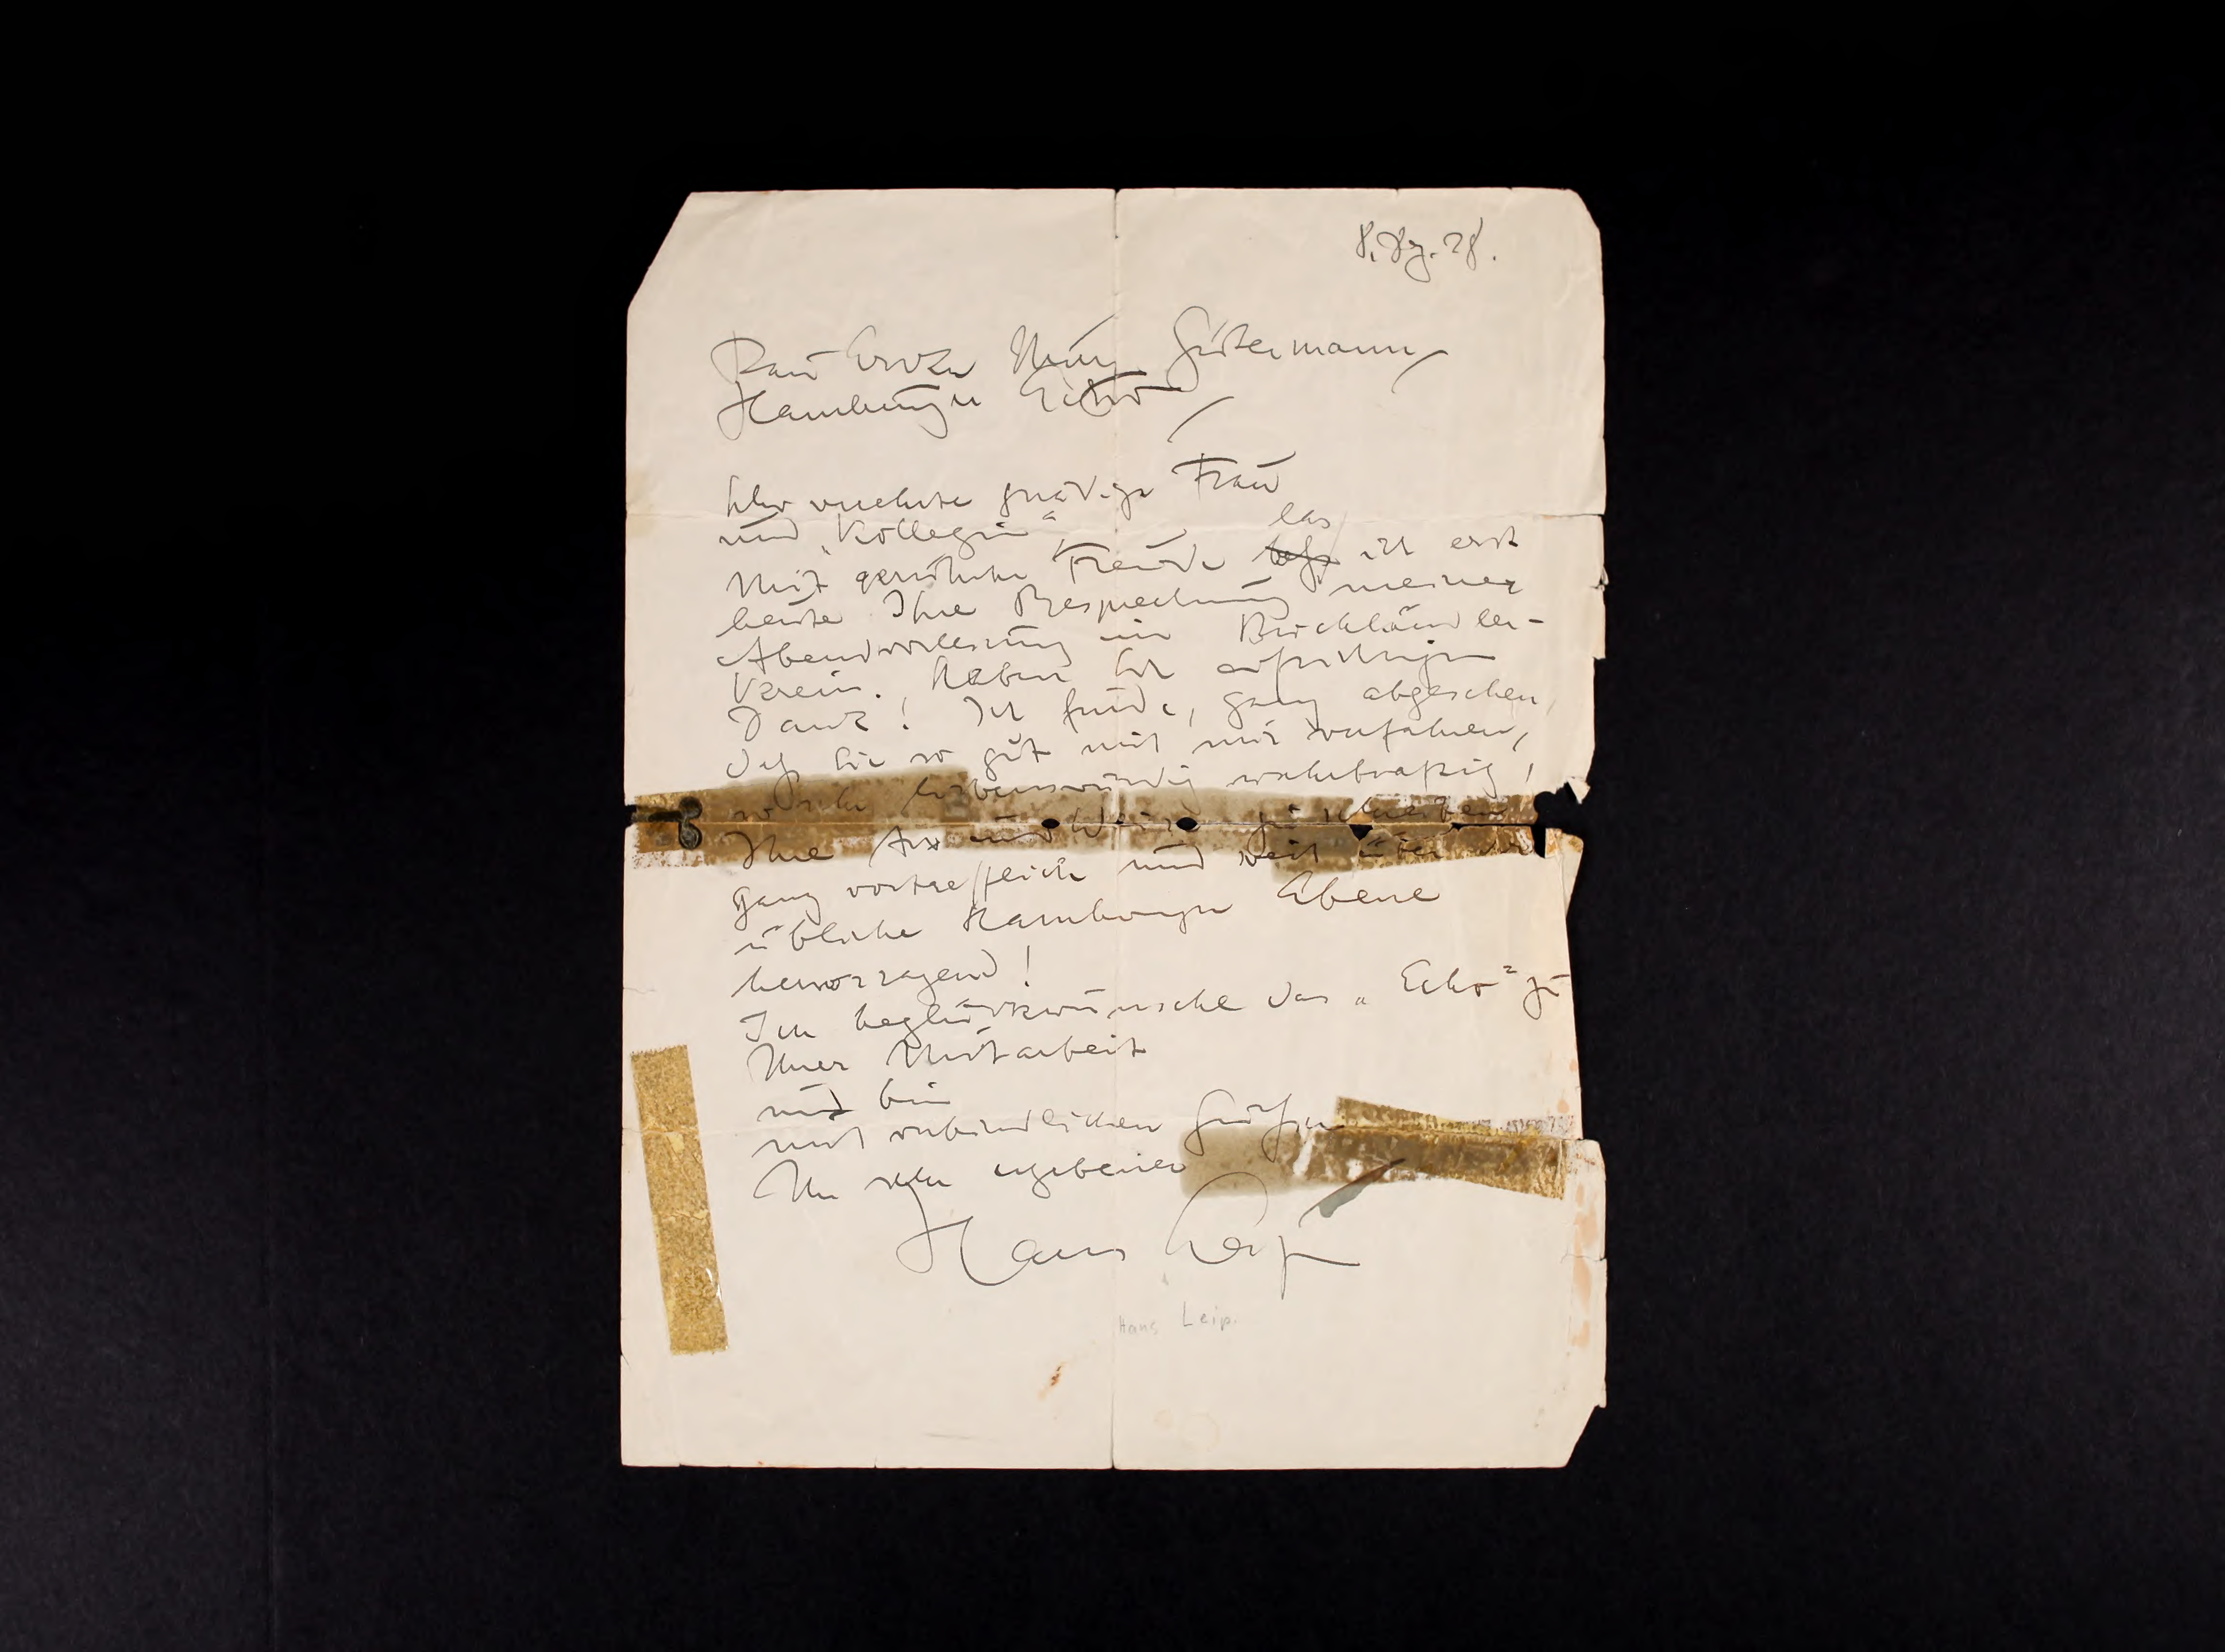 8. Dez. 28.
Frau Erika Guetermann
Hamburger Echo
Sehr verehrte gnädige Frau
und „Kollegin“,
las
Mit gerührter Freude ich erst
heute Ihre Besprechung meiner
Abendvorlesung im Buchhändler-
Verein. Haben Sie aufrichtigen
Dank! Ich finde, ganz abgesehen,
daß Sie so gut mit mir verfahren,
so sehr liebenswürdig wahrhaftig,
Ihre Art und Weise zu schreiben
ganz vortrefflich und weit über die
übliche Hamburger Ebene
hervorragend!
Ich beglückwünsche das „Echo“ zu
Ihrer Mitarbeit
und bin
mit verbindlichen Grüßen
Ihr sehr ergebener
Hans Leip
Hans Leip.